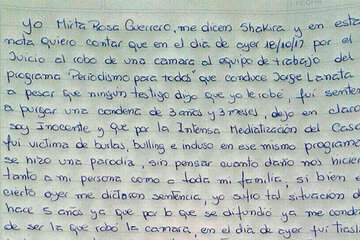 yo Mirta Rosa Guerrero, me dicen Shakira, y en esta
nota quiero contar que en el dia de ayer 18/10/17 por el
Juicio al robo de una camara al equipo de trabajo del
programa "Periodismo para todos" que conduce Jorge Lanata
a pesar que ningún testigo dijo que yo le robé, fui senten
a purgar una condena de 3 años y 3 meses, dejo en claro
soy Inocente y que por la Intensa Mediatización del Caso
fui victima de burlas, bulling e incluso en ese mismo programa
se hizo una parodia, sin pensar cuanto daño nos hicier
tanto a mi persona como a toda mi familia, si bien e
cierto ayer me dictaron sentencia, yo sufro tal situación d
hace 5 años ya que por lo que se difundio ya me conde
de ser la que robo la camara, en el dia de ayer fui Tras